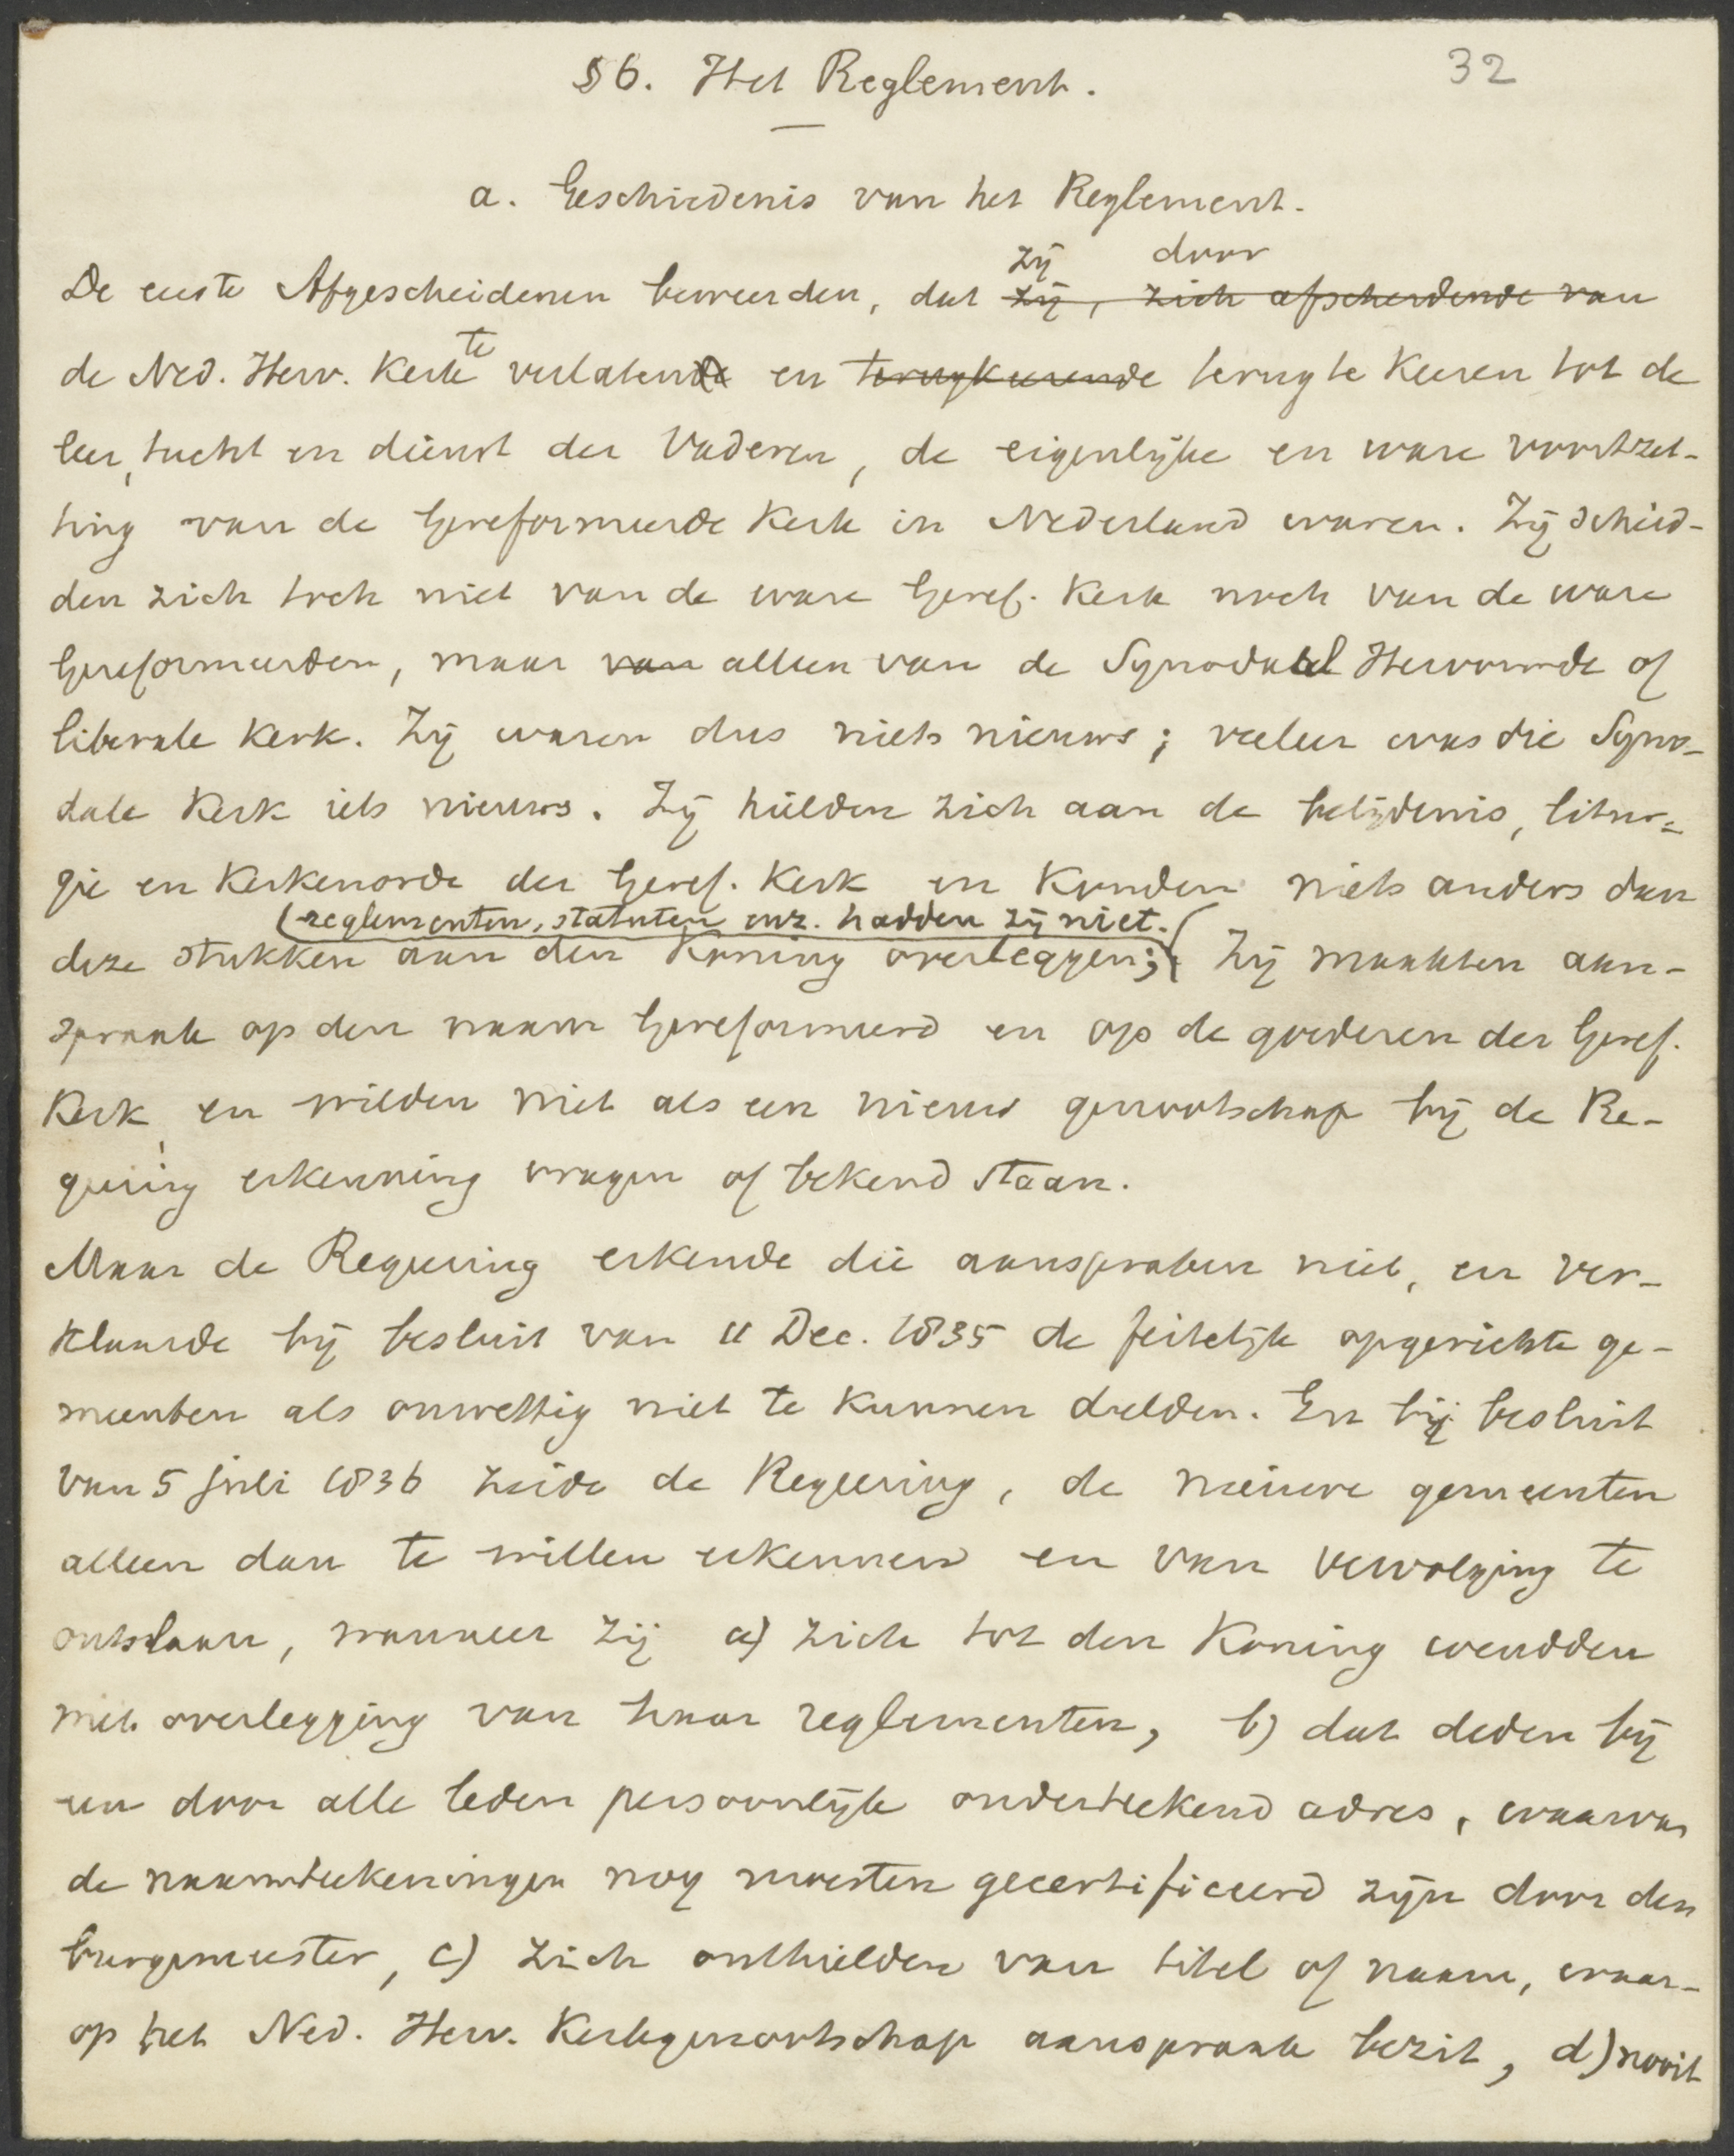 32
§ 6. Het Reglement.
a. Geschiedenis van het Reglement.
zij door
De eerste Afgescheidenen beweerden, dat zij, zich afscheidende van
te
de Ned. Herv. Kerk verlatende en terugkeerende terug te keeren tot de
leer, tucht en dienst der Vaderen, de eigenlijke en ware voortzet-
ting van de Gereformeerde Kerk in Nederland waren. Zij scheid-
den zich toch niet van de ware Geref. Kerk noch van de ware
Gereformeerden, maar van alleen van de Synodaal Hervormde of
liberale Kerk. Zij waren dus niets nieuws; veeleer was die Syno-
dale Kerk iets nieuws. Zij hielden zich aan de belijdenis, litur-
gie en Kerkenorde der Geref. Kerk en konden niets anders dan
(reglementen, statuten enz. hadden zij niet.
deze stukken aan den Koning overleggen; Zij maakten aan-
spraak op den naam Gereformeerd en op de goederen der Geref.
Kerk, en wilden niet als een nieuw genootschap bij de Re-
geering erkenning vragen of bekend staan.
Maar de Regeering erkende die aanspraken niet, en ver-
klaarde bij besluit van 11 Dec. 1835 de feitelijk opgerichte ge-
meenten als onwettig niet te kunnen dulden. En bij besluit
van 5 Juli 1836 zeide de Regeering, de nieuwe gemeenten
alleen dan te willen erkennen en van vervolging te
ontslaan, wanneer zij a) zich tot den Koning wendden
met overlegging van haar reglementen, b) dat deden bij
een door alle leden persoonlijk onderteekend adres, waarvan
de naamteekeningen nog moesten gecertificeerd zijn door den
burgemeester, c) zich onthielden van titel of naam, waar-
op het Ned. Herv. Kerkgenootschap aanspraak bezit, d) nooit